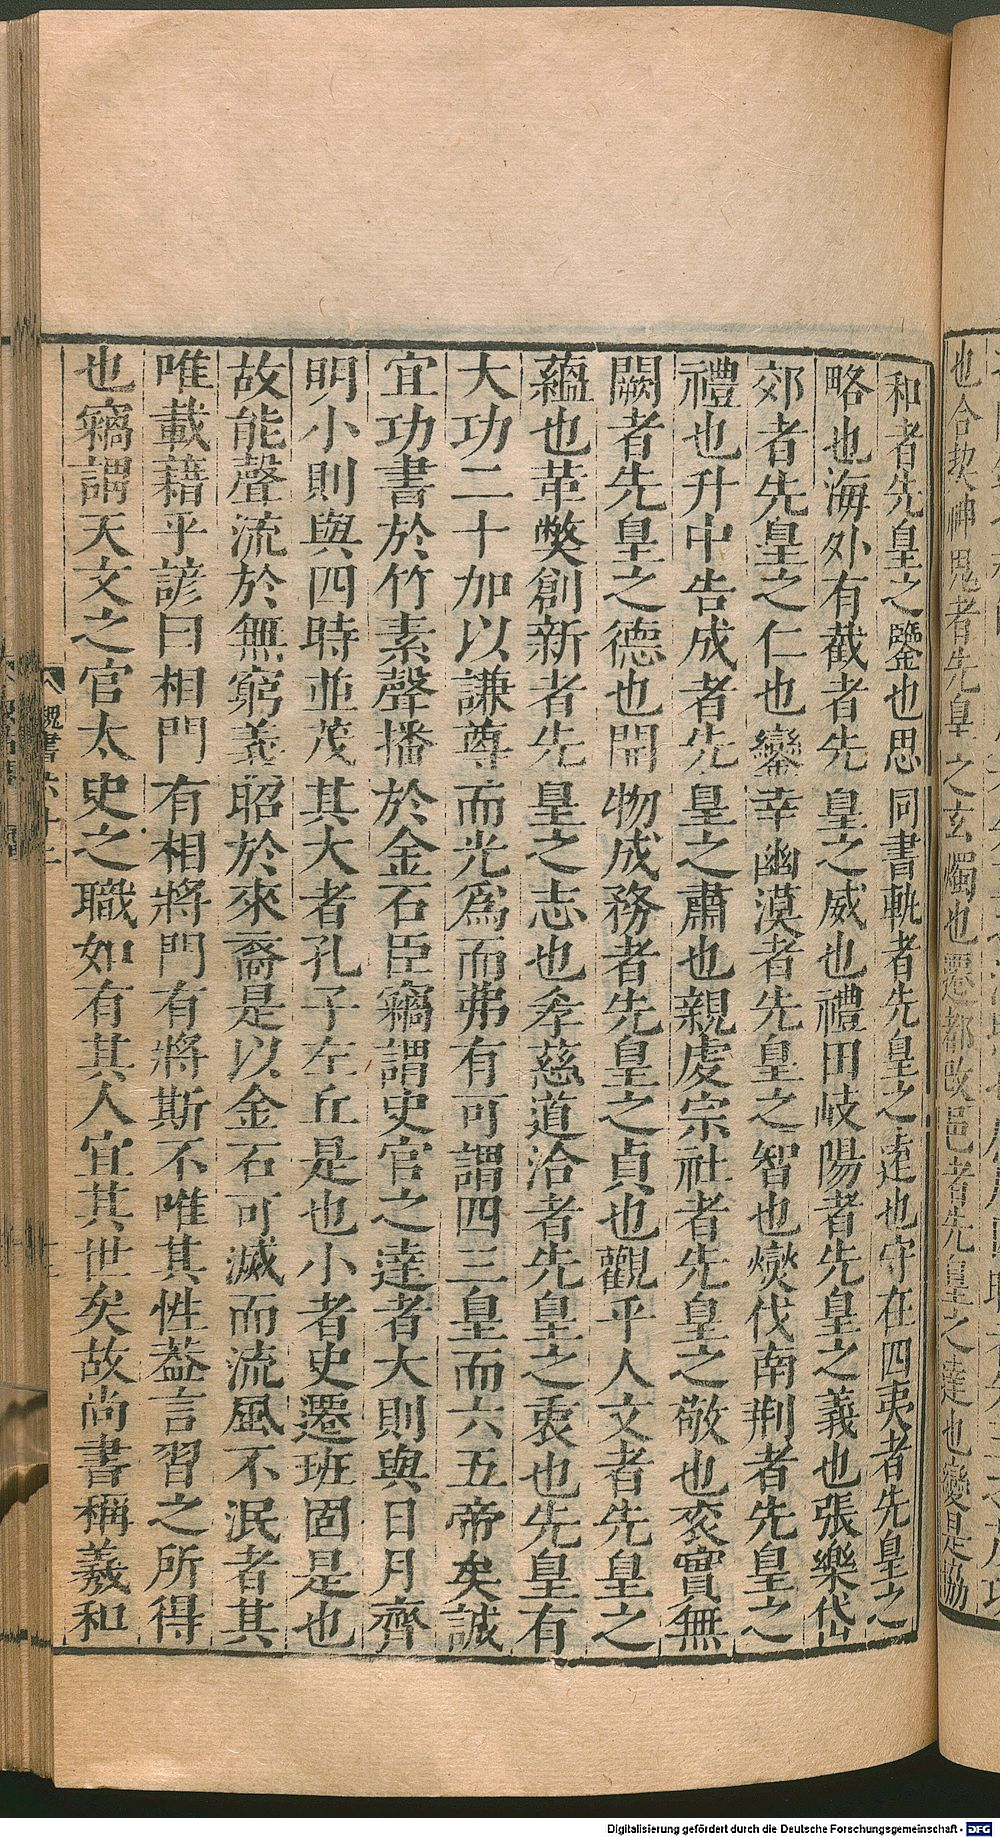 也合契神鬼者先皇之玄燭也遷都改邑者先皇之達也變是協
和者先皇之鑒也思同書軌者先皇之遠也守在四夷者先皇之
略也海外有截者先皇之威也禮田岐陽者先皇之義也張樂岱
郊者先皇之仁也鑾幸幽漠者先皇之智也爕伐南荆者先皇之
禮也升中告成者先皇之肅也親虔宗社者先皇之敬也衮實無
闕者先皇之德也開物成務者先皇之貞也觀乎人文者先皇之
蘊也革弊創新者先皇之志也孝慈道洽者先皇之衷也先皇有
大功二十加以謙尊而光爲而弗有可謂四三皇而六五帝矣誠
宜功書於竹素聲播於金石臣竊謂史官之達者大則與日月齊
明小則與四時並茂其大者孔子左丘是也小者史遷班固是也
故能聲流於無窮義昭於來裔是以金石可滅而流風不泯者其
唯載藉乎諺曰相門有相將門有將斯不唯其性葢言習之所得
也竊謂天文之官太史之職如有其人宜其世矣故尚書稱羲和
魏書六十二
Digitalisierung gefördert durch die Deutsche Forschungsgemeinschaft - DFG